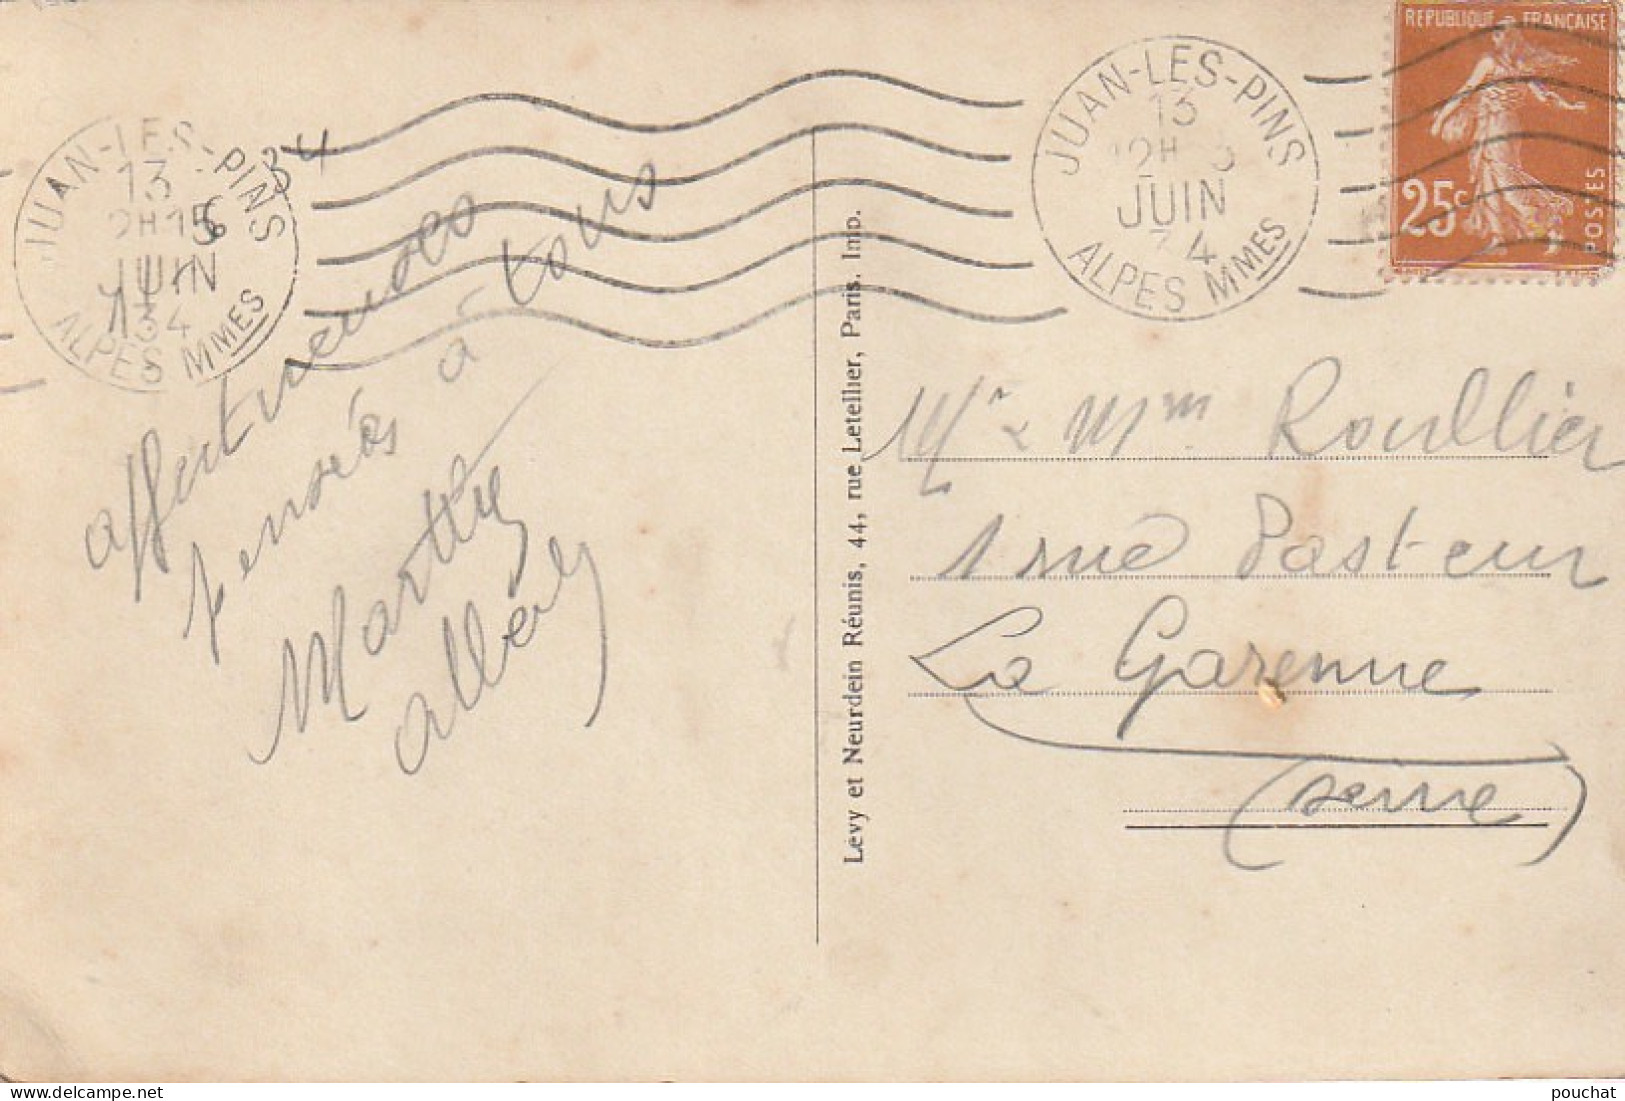 JUAN-LES-PINS
13
2H15
JUIN
34
ALPES MMES
34
JUAN-LES-PINS
13
12H
JUIN
34
ALPES MMES
REPUBLIQUE FRANÇAISE
25c
POSTES
affectueuses
pensées à tous
Marthy
Albéry
Lévy et Neurdein Réunis, 44, rue Letellier, Paris. Imp.
Mr & Mme Roullier
1 rue Pasteur
La Garenne
(Seine)
pouchat